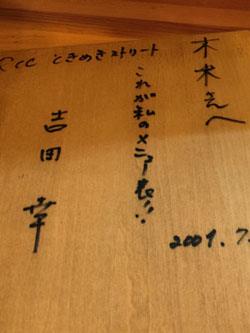 木米さんへ
CCC ときめきストリート
これが私のメニュー表!!
吉田 幸
2009.7.